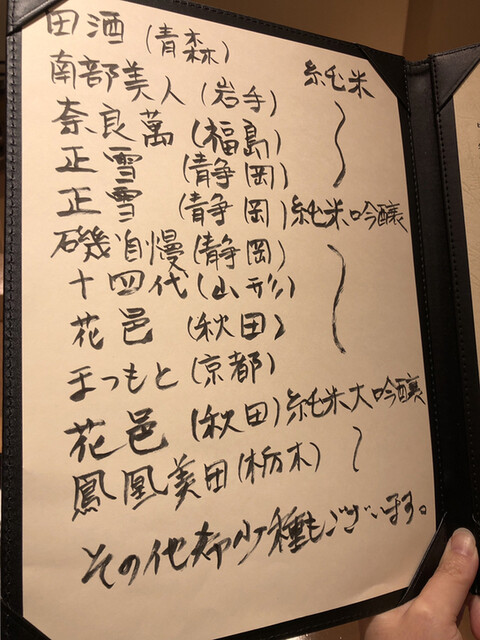 田酒 (青森) 純米
南部美人 (岩手) 〜
奈良萬 (福島)
正雪 (静岡)
正雪 (静岡) 純米吟醸
磯自慢 (静岡) 〜
十四代 (山形)
花邑 (秋田)
まつもと (京都)
花邑 (秋田) 純米大吟醸
鳳凰美田 (栃木) 〜
その他希少種もございます。